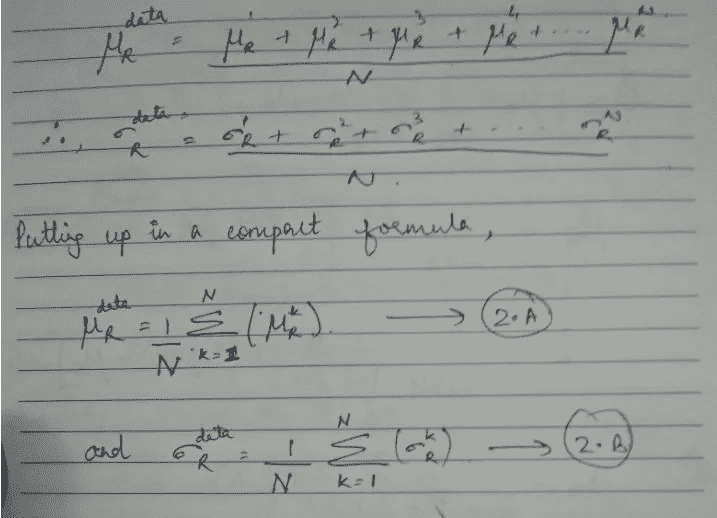 μ_R^data = μ_R^1 + μ_R^2 + μ_R^3 + μ_R^4 + .... μ_R^N
N
∴, σ_R^data = σ_R^1 + σ_R^2 + σ_R^3 + . . . σ_R^N
N.
Putting up in a compact formula,
μ_R^data = 1/N Σ_{k=1}^N (μ_R^k). → 2.A
and σ_R^data = 1/N Σ_{k=1}^N (σ_R^k) → 2.B